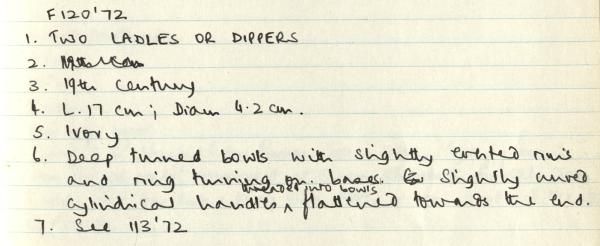 F120'72
1. TWO LADLES OR DIPPERS
2.
3. 19th century
4. L. 17 cm; Diam 4.2 cm.
5. Ivory
6. Deep turned bowls with slightly everted rims
and ring turning on bases. Slightly curved
threaded into bowls
cylindrical handles ^ flattened towards the end.
7. See 113'72